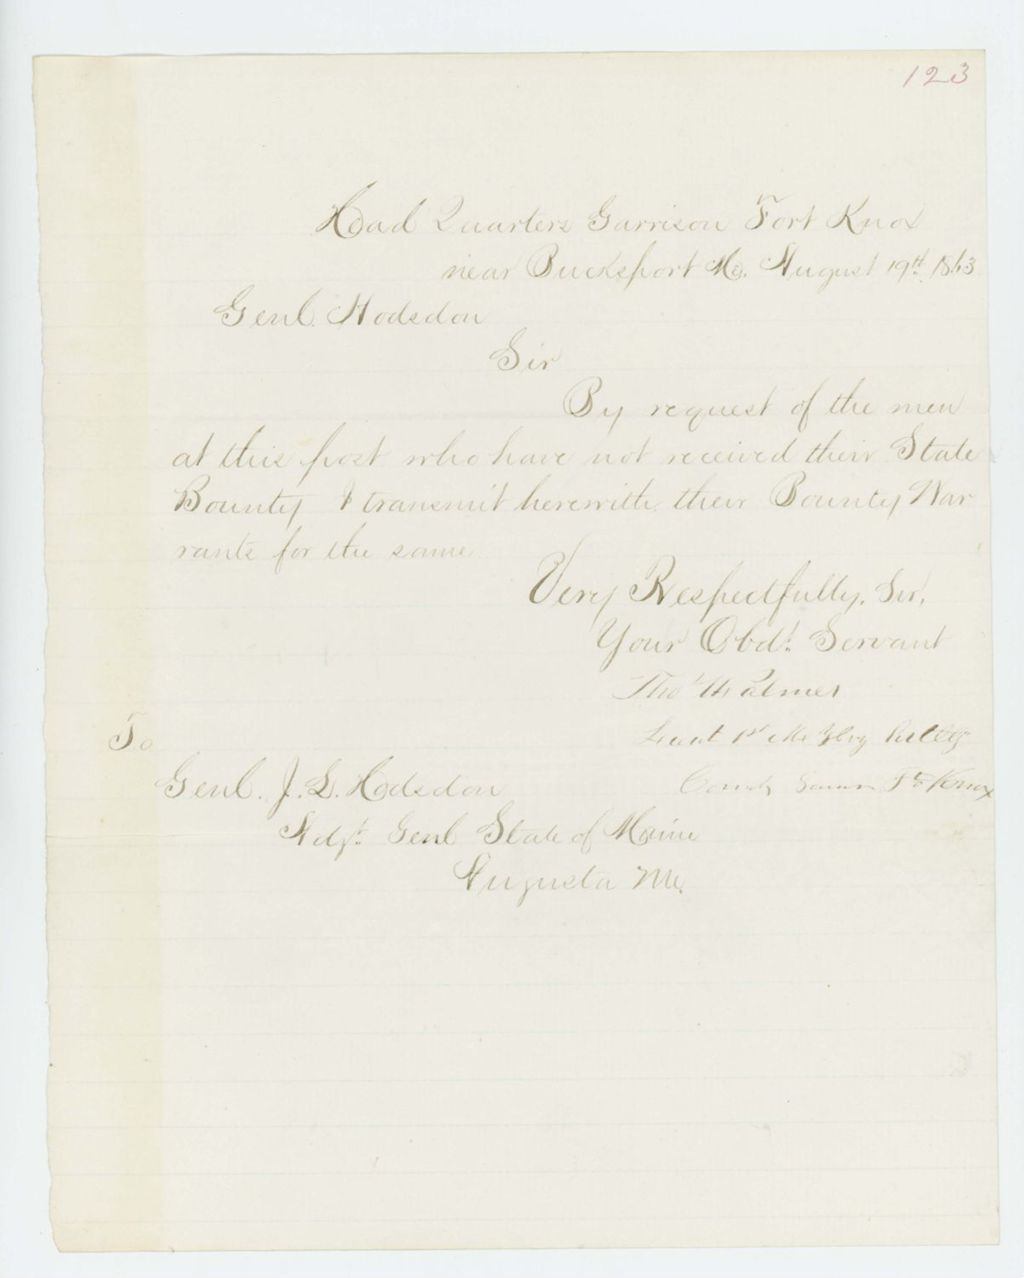 123
Head Quarters Garrison Fort Knox
near Bucksport Me. August 19th 1863
Genl. Hodsdon
Sir
By request of the men
at this post who have not received their State
Bounty I transmit herewith their Bounty War
rants for the same
Very Respectfully, Sir,
Your Obdt. Servant
Thos H Palmer
Lieut 1st Me Hvy Artlly
Comdg Garrison Ft Knox
To
Genl. J. L. Hodsdon
Adjt. Genl State of Maine
Augusta Me.